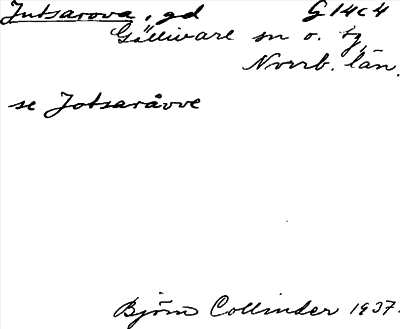 Jutsarova, gd G 14 c 4
Gällivare sn o. tg,
Norrb. län.
se Jotsaråvve
Björn Collinder 1937.